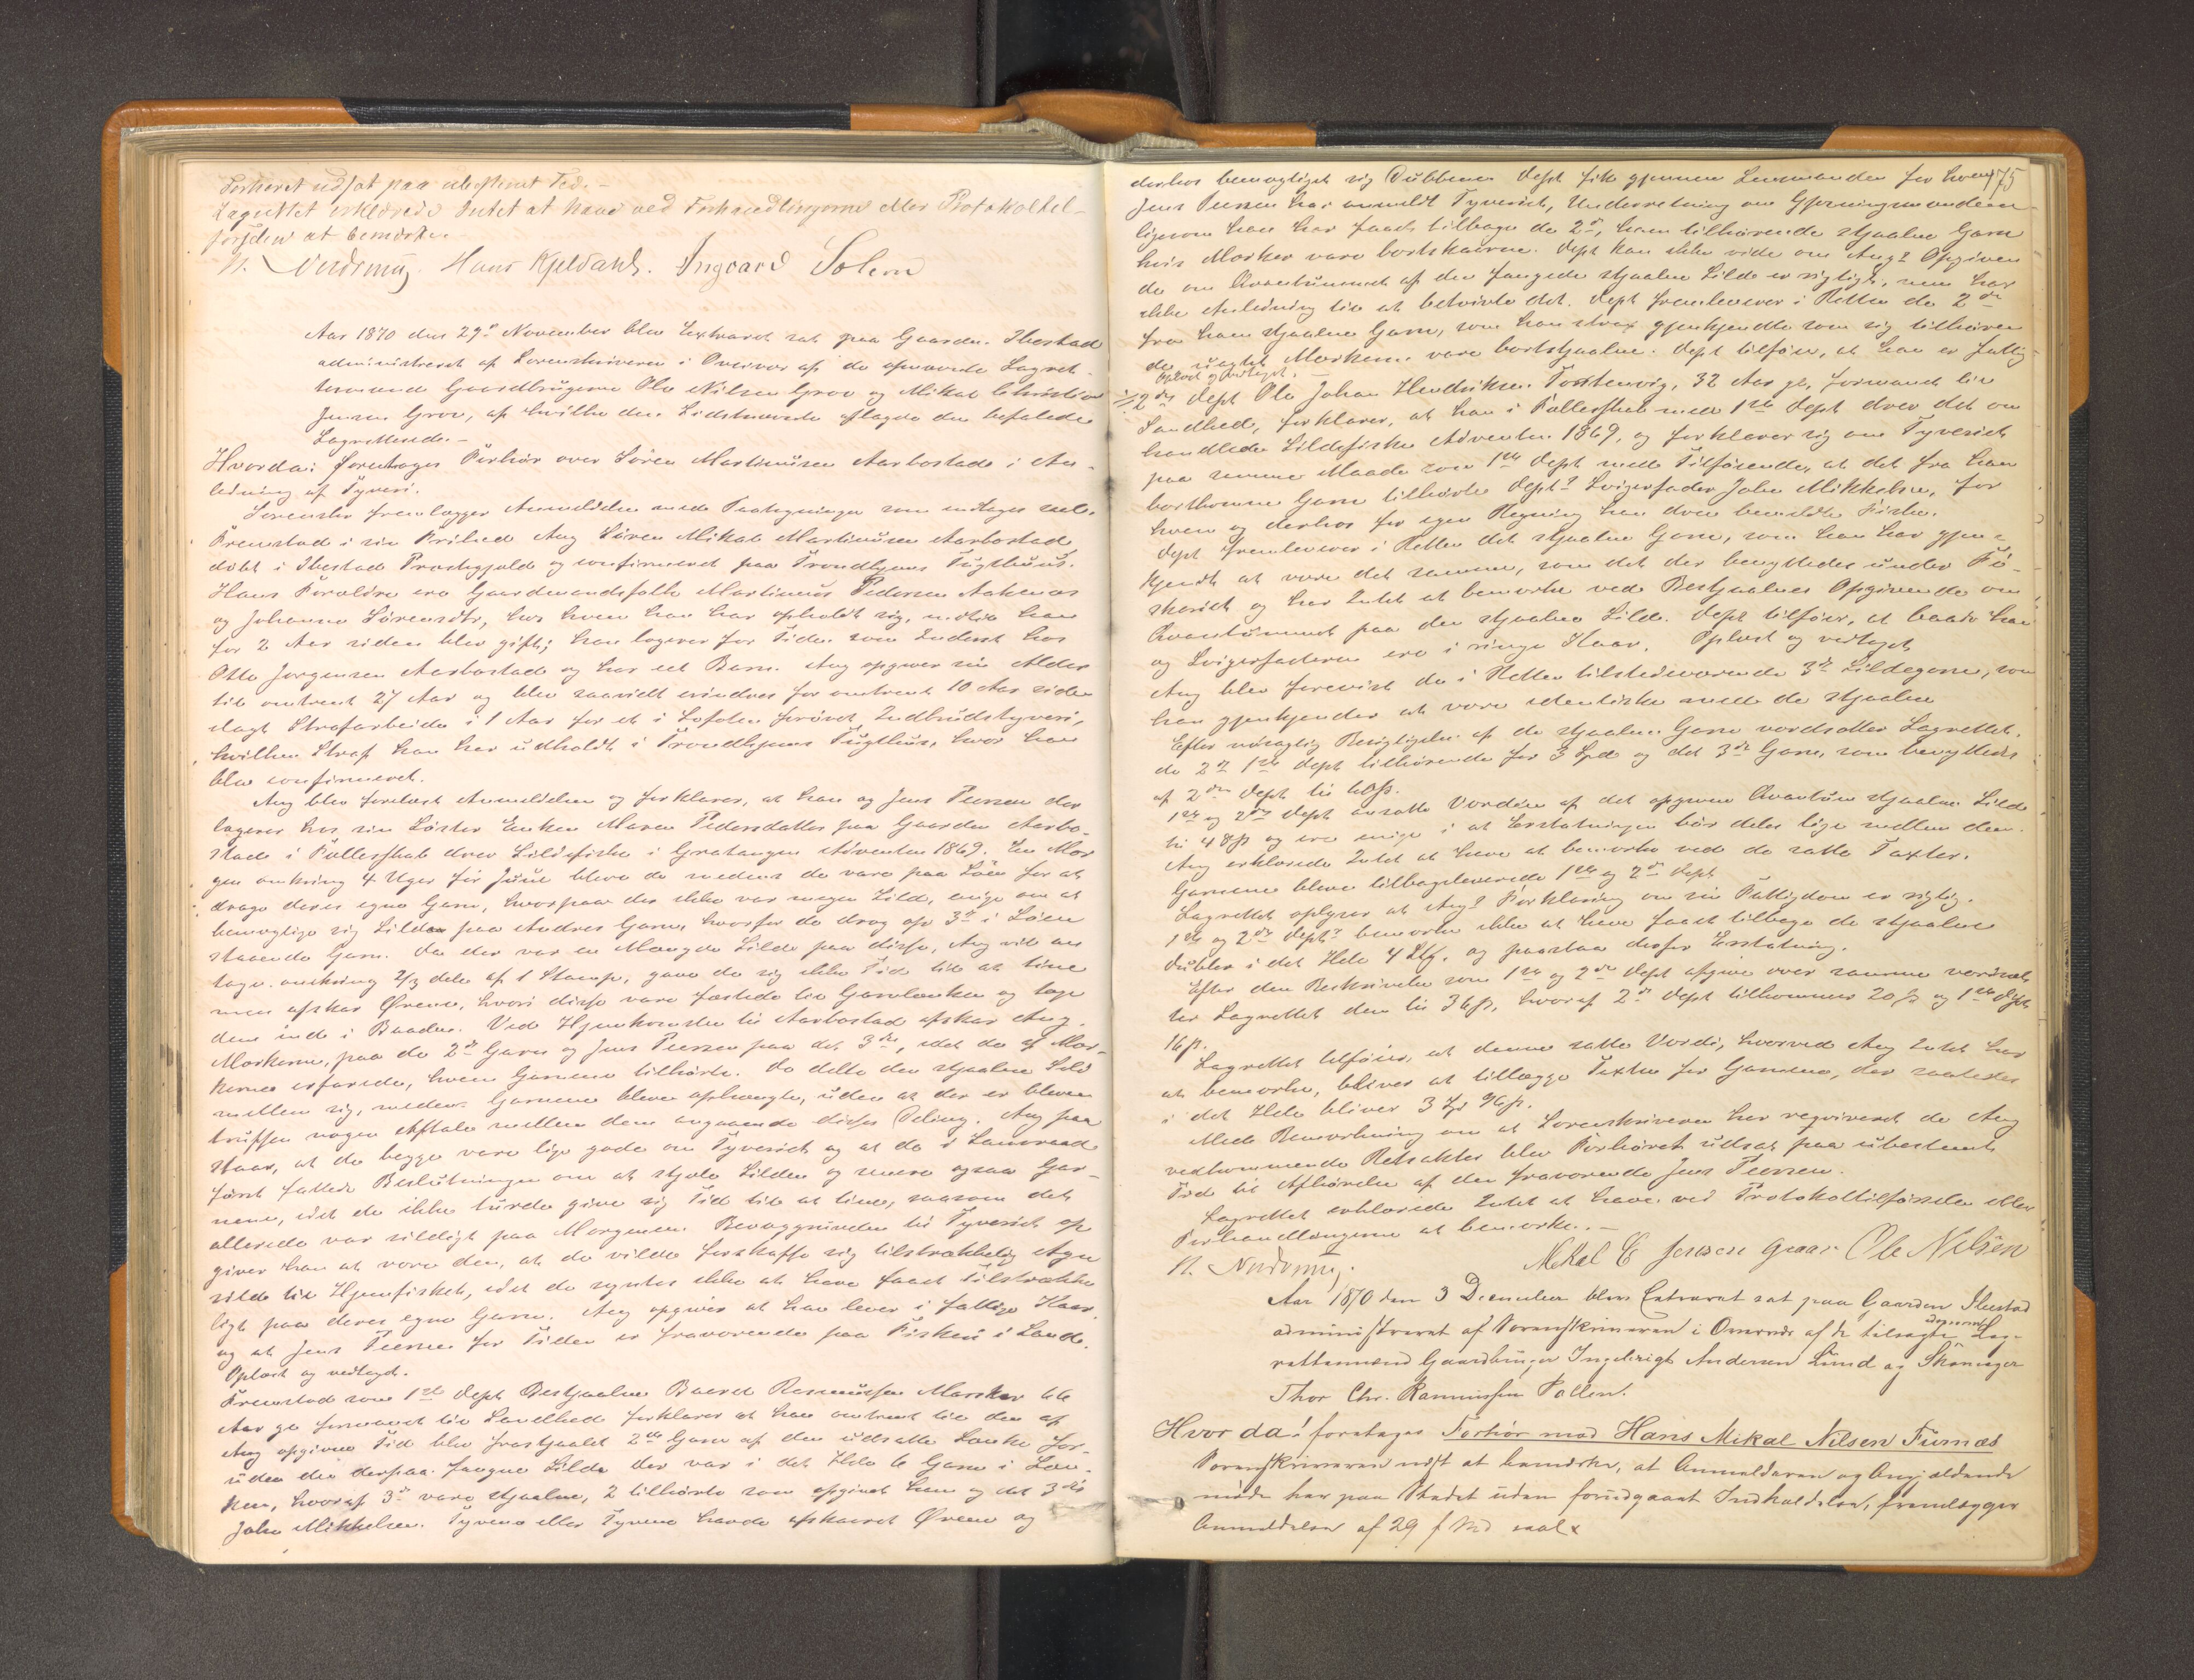 Forhøret udsat paa ubestemt Tid. –
Lagrettet erklærede Intet at have ved Forhandlingerne eller Protokoltil-
førselen at bemærke.
N. Hans Kjeldahl. Ingvard Solem
Aar 1870 den 29de November blev Extraret sat paa Gaarden Ibestad
administreret af Sorenskriveren i Overvær af de opnævnte Lagret-
temænd Gaardbrugerne Ole Nilsen Grov og Mikal Christian
Jensen Grov, af hvilke den Sidstnævnte aflagde den befalede
Lagretteseed. –
Hvorda: foretoges Forhør over Søren Martinusen Aarbostad i An-
ledning af Tyveri.
Sorenskr fremlægger Anmeldelse med Paategninger som indtages
Fremstod i sin Frihed Ang Søren Mikal Martinusen Aarbostad
døbt i Ibestad Præstegjeld og confirmeret paa Trondhjems Tugthuus.
Hans Forældre ere Gaardmandsfolk Martinus Pedersen Aakenes
og Johanna Sørensdtr, hos hvem han har opholdt sig, indtil han
for 2 Aar siden blev gift; han logerer for Tiden som Inderst hos
Otto Jørgensen Aarbostad og har eet Barn. Ang opgiver sin Alder
til omtrent 27 Aar og blev saavidt erindres for omtrent 10 Aar siden
ilagt Strafarbeide i 1 Aar for et i Lofoten forøvet Indbrudstyveri,
hvilken Straf han har udholdt i Trondhjems Tugthus, hvor han
blev confirmeret.
Ang blev forelæst Anmeldelsen og forklarer, at han og Jens Peersen der
logerer hos sin Søster Enken Maren Pedersdatter paa Gaarden Aarbo-
stad i Fællesskab drev Sildefiske i Gratangen Adventen 1869. En Mor
gen omkring 4 Uger før Juul bleve de medens de vare paa Søen for at
drage deres egne Garn, hvorpaa der ikke var megen Sild, enige om at
bemægtige sig Silden paa Andres Garn, hvorfor de drog op 3de i Søen
staaende Garn. Da der var en Mængde Sild paa disse, Ang vil an
tage omkring 2/3 dele af 1 Stamp, gave de sig ikke Tid til at tine
men afskar Ørene, hvori disse vare fæstede til Garnlænken og toge
dem ind i Baaden. Ved Hjemkomsten til Aarbostad afskar Ang.
Mærkerne, paa de 2de Garn og Jens Peersen paa det 3die, idet de af Mær-
kerne erfarede, hvem Garnene tilhørte. De delte den stjaalne Sild
mellem sig, medens Garnene bleve ophængte, uden at der er bleven
truffen nogen Aftale mellem dem angaaende disses Deling. Ang paa
staar, at de begge vare lige gode om Tyveriet og at de i Samraad
først fattede Beslutningen om at stjæle Silden og senere ogsaa Gar-
nene, idet de ikke turde give sig Tid til at tine, saasom det
allerede var sildigt paa Morgenen. Bevæggrunden til Tyveriet op
giver han at være den, at de vilde forskaffe sig tilstrækkelig Agn
sild til Hjemfisket, idet de syntes ikke at have faaet Tilstrække
ligt paa deres egne Garn. Ang opgiver at han lever i fattige Kaar
og at Jens Peersen for Tiden er fraværende paa Fiskeri i Sand.
Oplæst og vedtaget.
Fremstod som 1ste Dept Bestjaalne Baeret Rasmussen Marsker
Aar gl formanet til Sandhed forklarer at han omtrent til den af
Ang opgivne Tid blev frastjaalet 2de Garn af den udsatte Lænke for-
uden den derpaa fangne Sild. Der var i det Hele 6 Garn i Læn-
ken, hvoraf 3de vare stjaalne, 2 tilhørte som opgivet ham og det 3die
John Mikkelsen. Tyvene eller Tyven havde afskaaret Ørene og
175
derhos bemægtiget sig Dubberne. Dept fik gjennem Lensmanden for hvem
Jens Peersen har anmeldt Tyveriet, Underretning om Gjerningsmændene
ligesom han har faaet tilbage de 2de, ham tilhørende stjaalne Garn
hvis Mærker vare bortskaarne. Dept kan ikke vide om Angs Opgiven
de om Qvantummet af den fangede stjaalne Sild er rigtigt, men har
ikke Anledning til at betvivle det. Dept fremleverer i Retten de 2de
fra ham stjaalne Garn, som han strax gjenkjendte som sig tilhøren
de uagtet Mærkerne vare bortstjaalne. Dept tilføier, at han er fattig
Oplæst og vedtaget. –
2den Dept Ole Johan Hendriksen Tostenvig, 32 Aar gl, formanet til
Sandhed, forklarer, at han i Fællesskab med 1ste Dept drev det om
handlede Sildefiske Adventen 1869, og forklarer sig om Tyveriet
paa samme Maade som 1ste Dept med Tilføiende, at det fra ham
bortkomne Garn tilhørte Depts Svigerfader John Mikkelsen, for
hvem og derhos for egen Regning han drev bemeldte Fiske.
Dept fremleverer i Retten det stjaalne Garn, som han har gjen-
kjendt at være det samme, som det der benyttedes under Fi-
skeriet og har Intet at bemærke ved Bestjaalnes Opgivende om
Qvantummet paa den stjaalne Sild. Dept tilføier, at baade han
og Svigerfaderen ere i ringe Kaar. Oplæst og vedtaget
Ang blev forevist de i Retten tilstedeværende 3de Sildegarn, som
han gjenkjender at være identiske med de stjaalne
Efter nøiagtig Besigtigelse af de stjaalne Garn værdsatter Lagrettet.
de 2de 1ste Dept tilhørende for 3 Spd og det 3die Garn, som benyttedes
af 2den Dept til 60 ß.
1ste og 2den Dept ansatte Værdien af det opgivne Qvantum stjaalne Sild
til 48 ß og ere enige i at Erstatningen bør deles lige mellem dem.
Ang erklærede Intet at have at bemærke ved de satte Taxter.
Garnene bleve tilbageleverede 1ste og 2den Dept
Lagrettet oplyser at Angs Forklaring om sin Fattigdom er rigtig.
1ste og 2den Dept bemærke ikke at have faaet tilbage de stjaalne
Dubler i det Hele 4 Stk. og paastaa derfor Erstatning.
Efter den Beskrivelse som 1ste og 2den Dept afgive over samme værdsæt
ter Lagrettet dem til 36 ß, hvoraf 2den Dept tilkommer 20 ß og 1ste Dept
16 ß.
Lagrettet tilføier, at denne satte Værdi, hvorved Ang Intet har
at bemærke, bliver at tillægge Taxten for Garnene, der saaledes
i det Hele bliver 3 Spd 96 ß.
Med Bemærkning om at Sorenskriveren har reqvireret de Ang
vedkommende Retsakter blev Forhøret udsat paa ubestemt
Tid til Afhørelse af den fraværende Jens Peersen.
Lagrettet erklærede Intet at have ved Protokoltilførselen eller
Forhandlingerne at bemærke. –
N. Mekal C Jensen Graav Ole Nilsen
Aar 1870 den 3 December blev Extraret sat paa Gaarden Ibestad
administreret af Sorenskriveren i Overvær af de tilsagte edsvorne Lag-
rettemænd Gaardbruger Ingebrigt Andersen Lund og Skøninger
Thor Chr. Rasmussen Pollen.
Hvor da! foretages Forhør mod Hans Mikal Nilsen Furnæs
Sorenskriveren med at bemærke, at Anmelderen og Angjældende
møde her paa Stedet uden forudgaaet Indkaldelse, fremlægger
Anmeldelse af 29 f Md